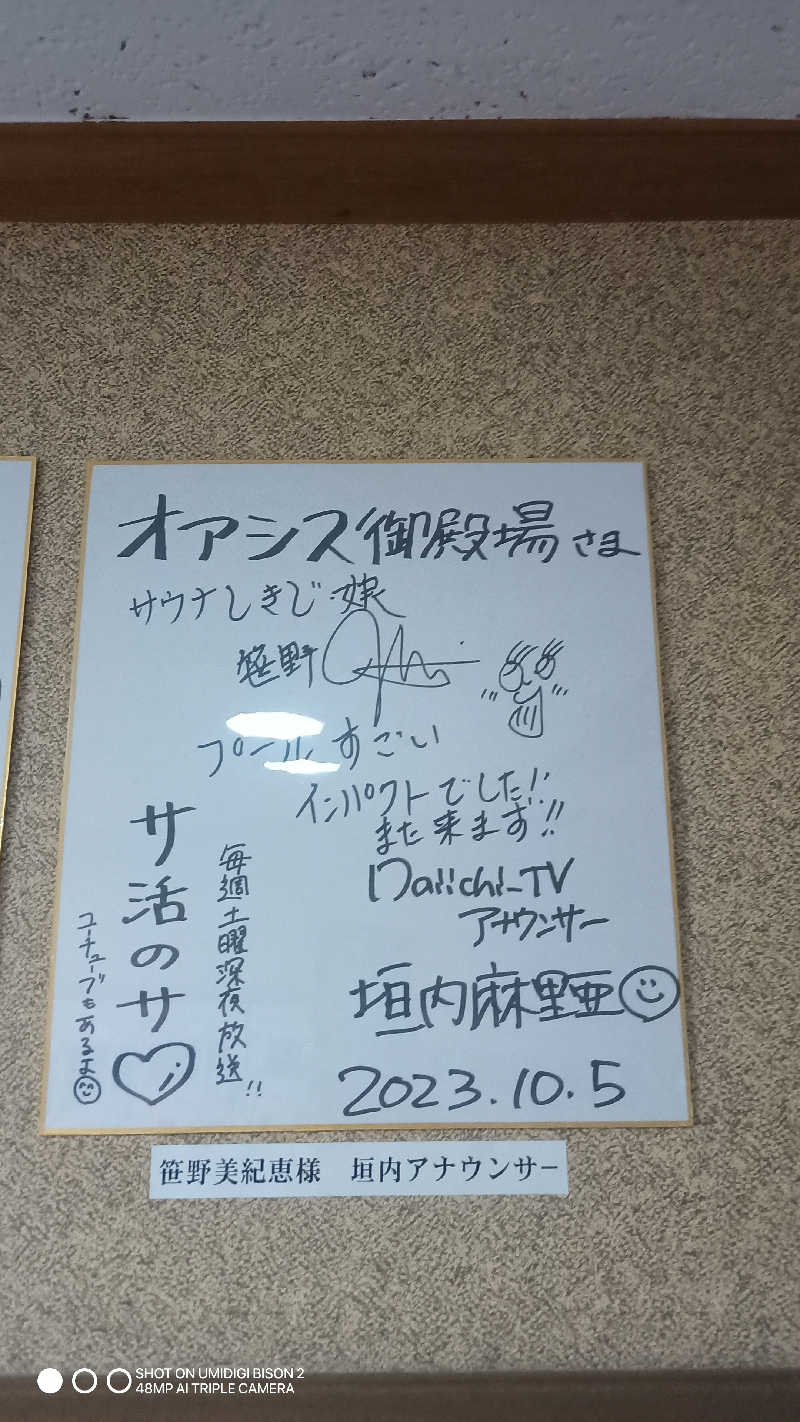 オアシス御殿場さま
サウナしきじ娘
笹野
プールすごい
インパクトでした!!
また来ます!!
Daiichi-TV
アナウンサー
垣内麻里亜
2023.10.5
毎週土曜深夜放送!!
サ活のサ
ユーチューブもあるよ
笹野美紀恵様　垣内アナウンサー
SHOT ON UMIDIGI BISON 2
48MP AI TRIPLE CAMERA